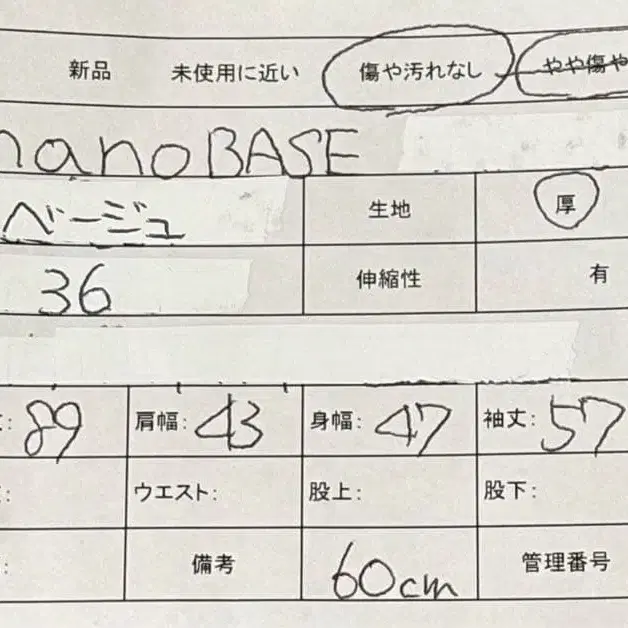 新品 未使用に近い 傷や汚れなし やや傷や
nanoBASE
ベージュ 生地 厚
36 伸縮性 有
: 89 肩幅: 43 身幅: 47 袖丈: 57
: ウエスト: 股上: 股下:
: 備考 60cm 管理番号